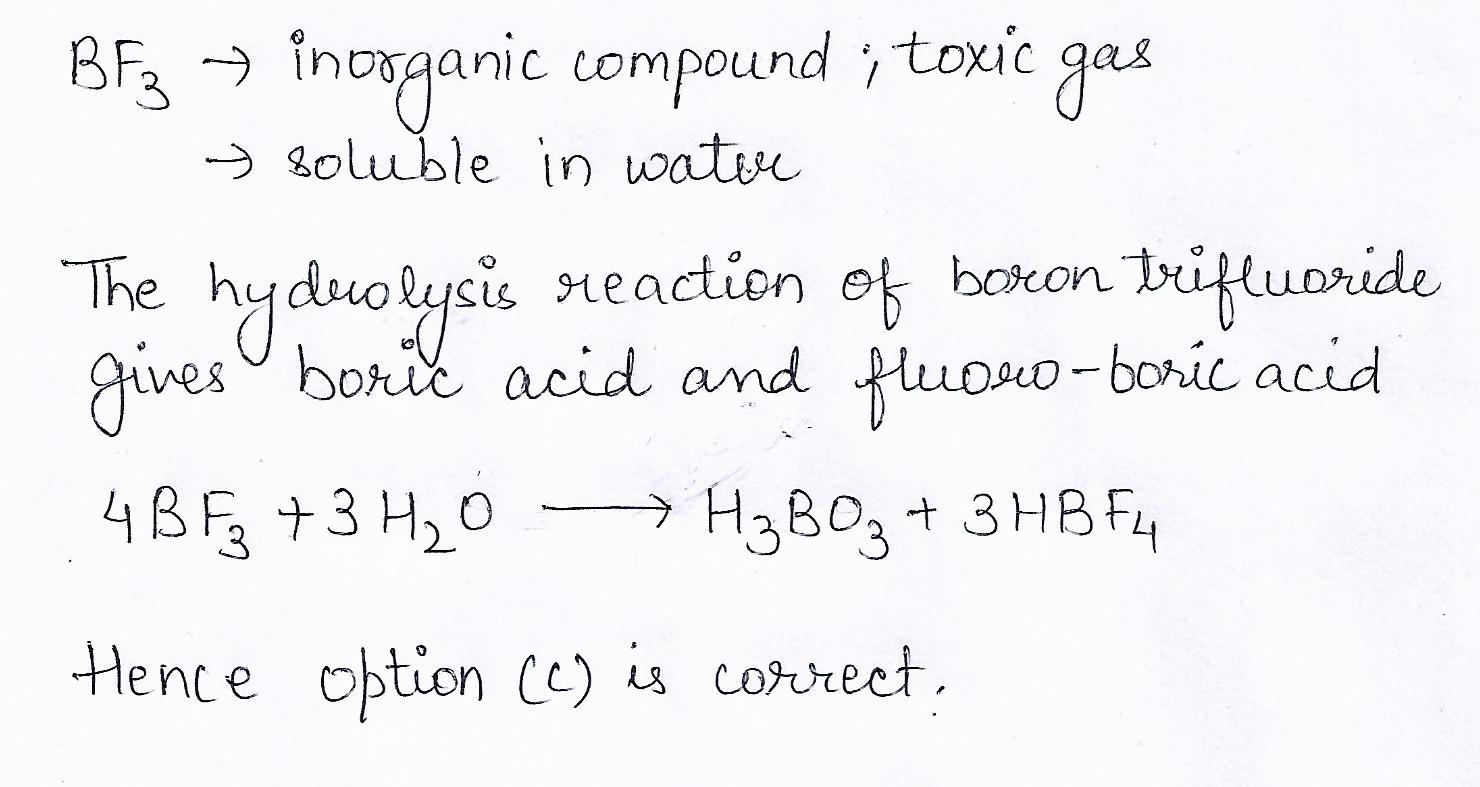 BF₃ → inorganic compound ; toxic gas
→ soluble in water
The hydrolysis reaction of boron trifluoride
gives boric acid and fluoro-boric acid
4BF₃ + 3H₂O ⟶ H₃BO₃ + 3HBF₄
Hence option (c) is correct.